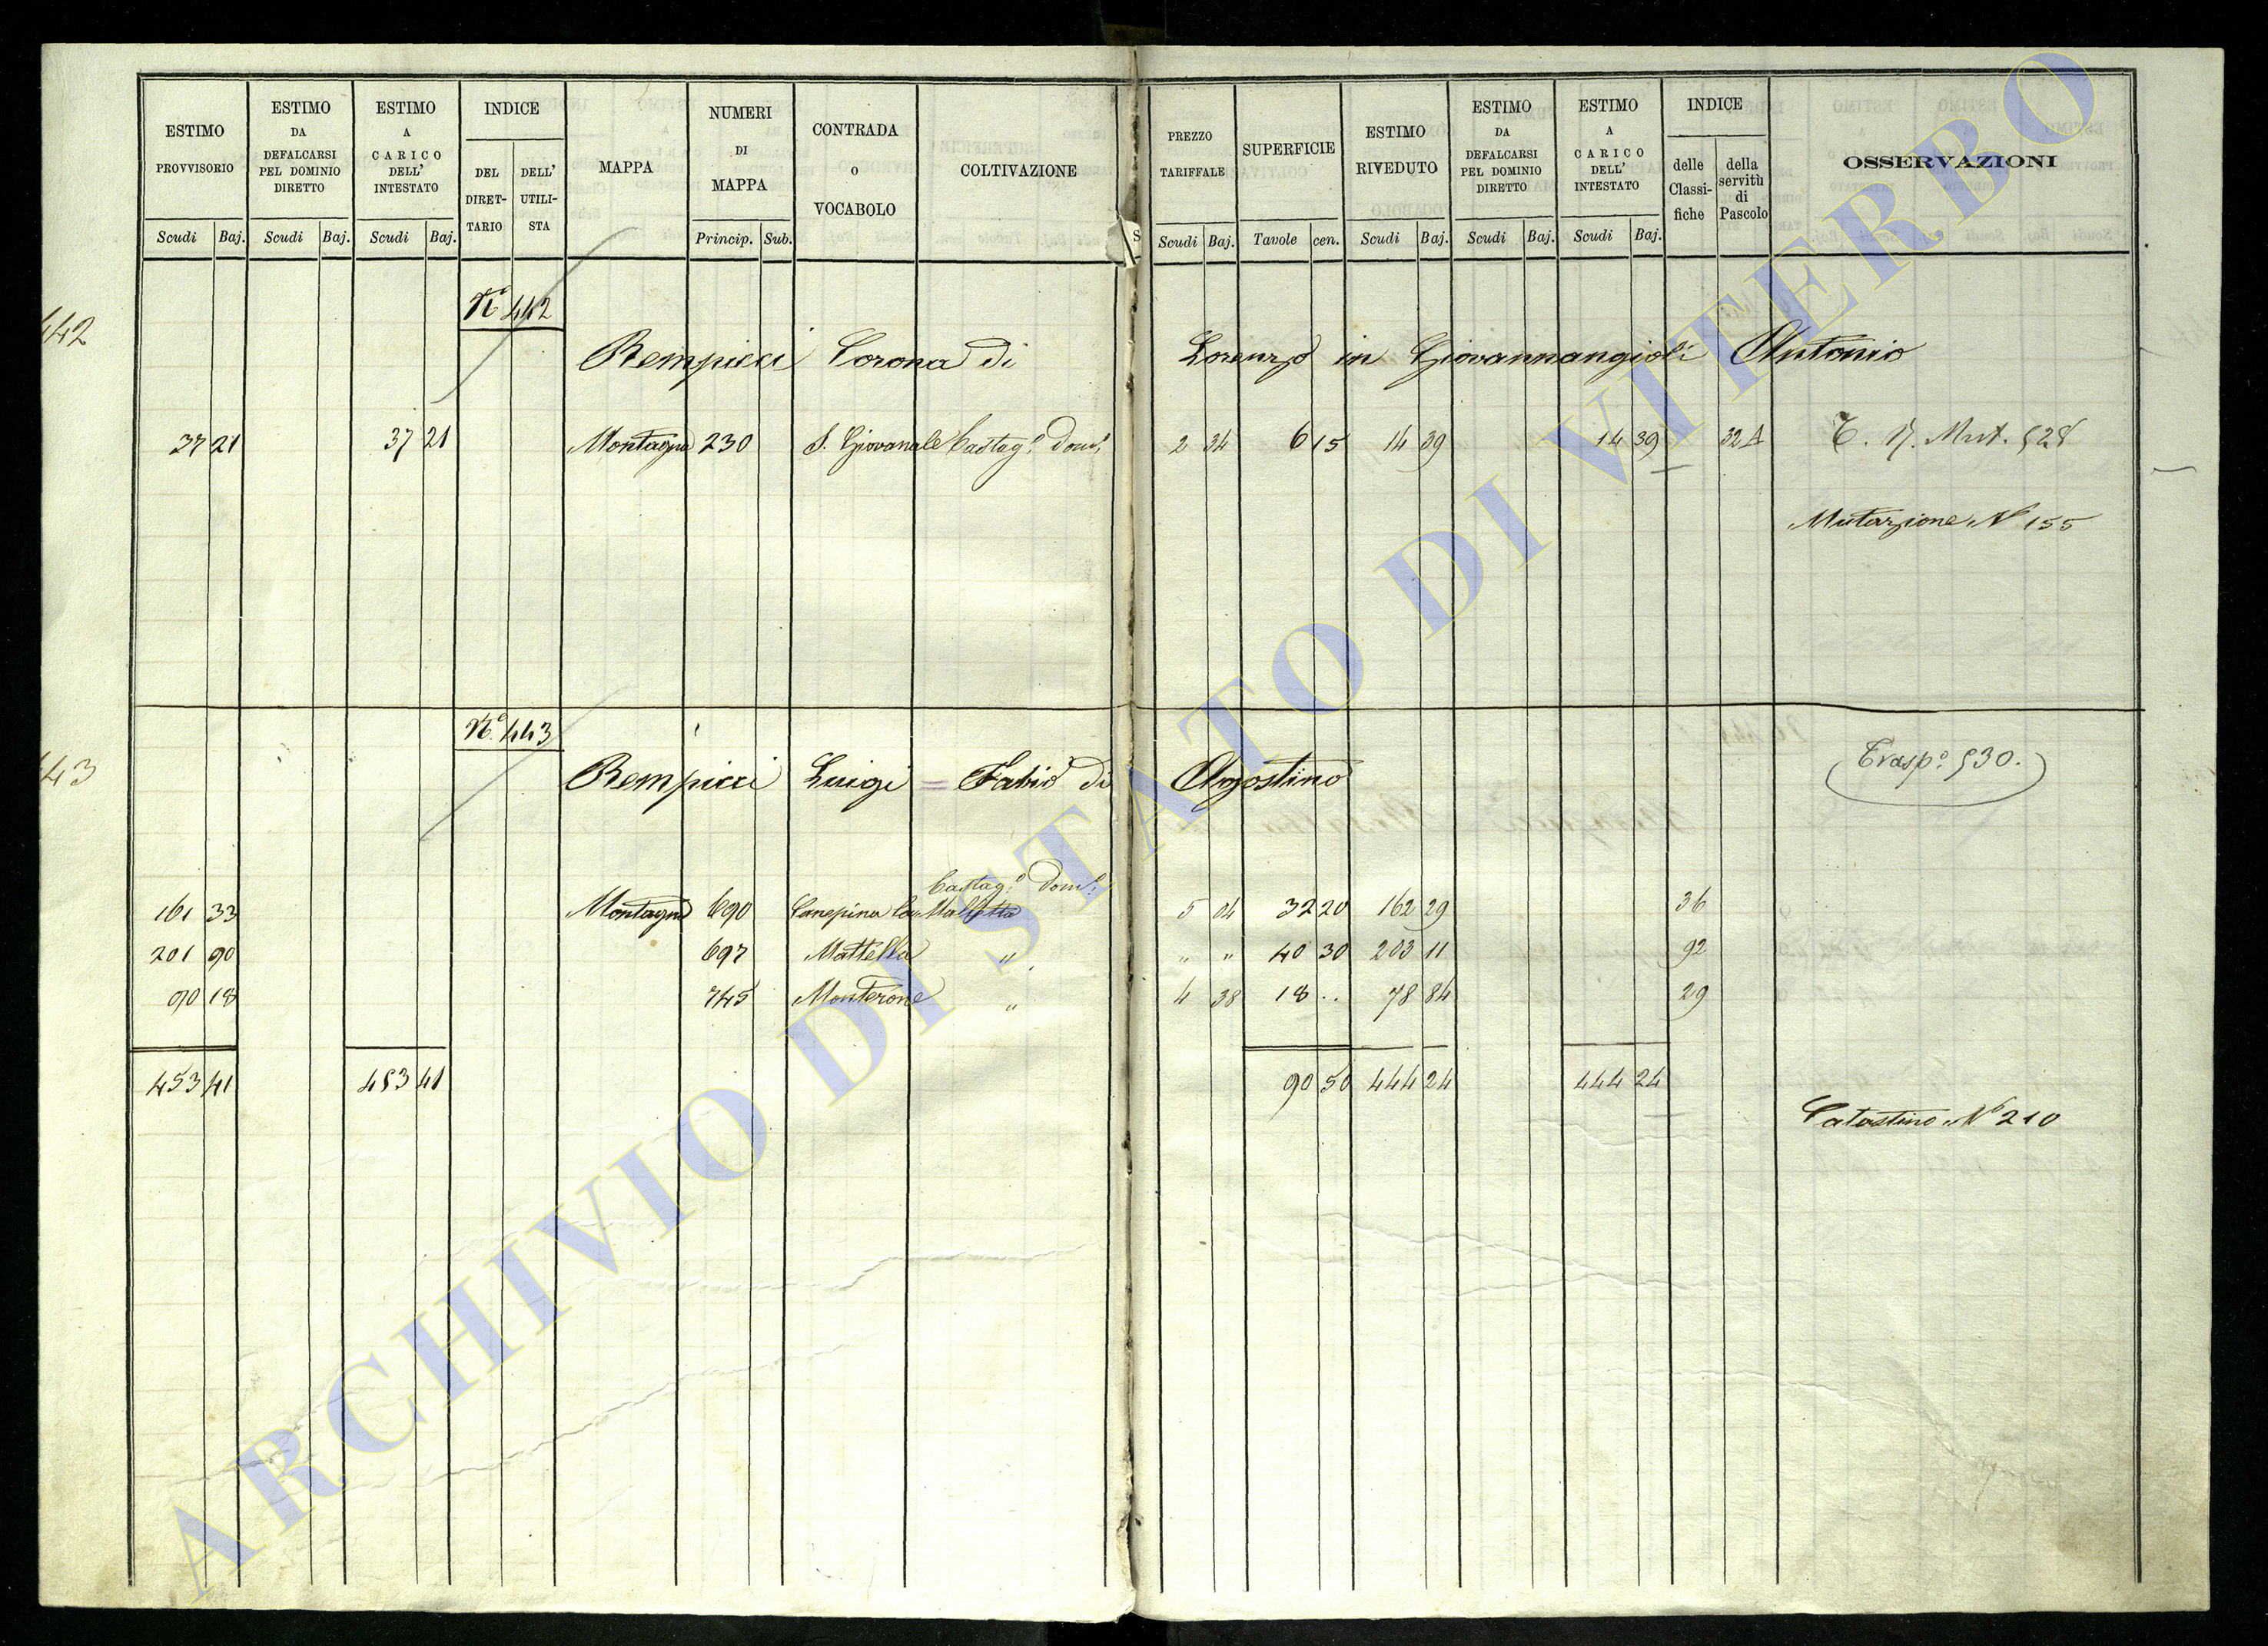 ESTIMO PROVVISORIO ESTIMO DA DEFALCARSI PEL DOMINIO DIRETTO ESTIMO A CARICO DELL' INTESTATO INDICE DEL DIRETTARIO DELL' UTILISTA MAPPA NUMERI DI MAPPA CONTRADA O VOCABOLO COLTIVAZIONE PREZZO TARIFFALE SUPERFICIE ESTIMO RIVEDUTO ESTIMO DA DEFALCARSI PEL DOMINIO DIRETTO ESTIMO A CARICO DELL' INTESTATO INDICE delle Classifiche della servitù di Pascolo OSSERVAZIONI
Scudi Baj. Scudi Baj. Scudi Baj. Princip. Sub. S Scudi Baj. Tavole cen. Scudi Baj. Scudi Baj. Scudi Baj.
442 N.° 442
Rempicci Corona di Lorenzo in Giovannangioli Antonio
37 21 37 21 Montagna 230 S. Giovanale Castag.° Dom.° 2 34 6 15 14 39 14 39 32 A Mut. 528
Mutazione N 155
443 N.° 443
Rempicci Luigi = Fabio di Agostino Trasp.° 530.
Castag.° Dom.°
161 33 Montagna 690 Canepina 5 04 32 20 162 29 36
201 90 697 Mattella " " " 40 30 203 11 92
90 18 745 Monterone " 4 38 18 .. 78 84 29
453 41 453 41 90 50 444 24 444 24
Catastino N° 210
ARCHIVIO DI STATO DI VITERBO